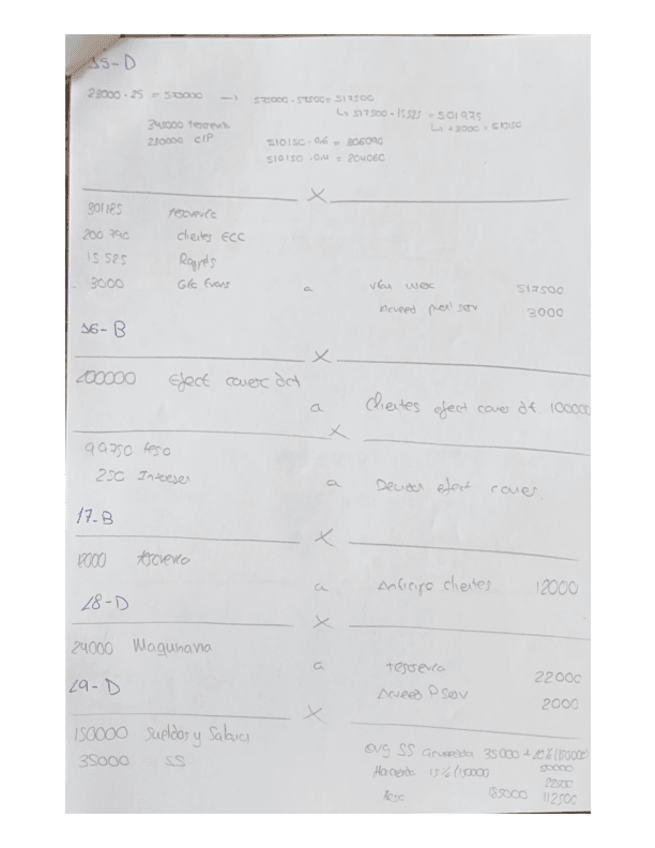 15-D
23000 · 25 = 575000 → 575000 - 57500 = 517500
↳ 517500 - 15525 = 501975
↳ + 3000 =
345000 tesorería
230000 c/P
510150 · 0.6 = 306090
510150 · 0.4 = 204060
X
301185 tesorería
200 790 clientes ECC
15 525
3000 a 517500
3000
16-B
X
100000 Efect comerc dct
a Clientes efect comer dt. 100000
X
99750 teso
250 Intereses
a Deudas efect comer.
17-B
X
tesorería
a Anticipo clientes 12000
18-D
X
24000 Maquinaria
a tesorería 22000
Acreed P Serv 2000
19-D
X
150000 Sueldos y Salarios
35000 SS
org SS Acreedora 35000 + 10% (150000)
50000
Hacienda 15% (150000)
22500
tesc 185000 112500